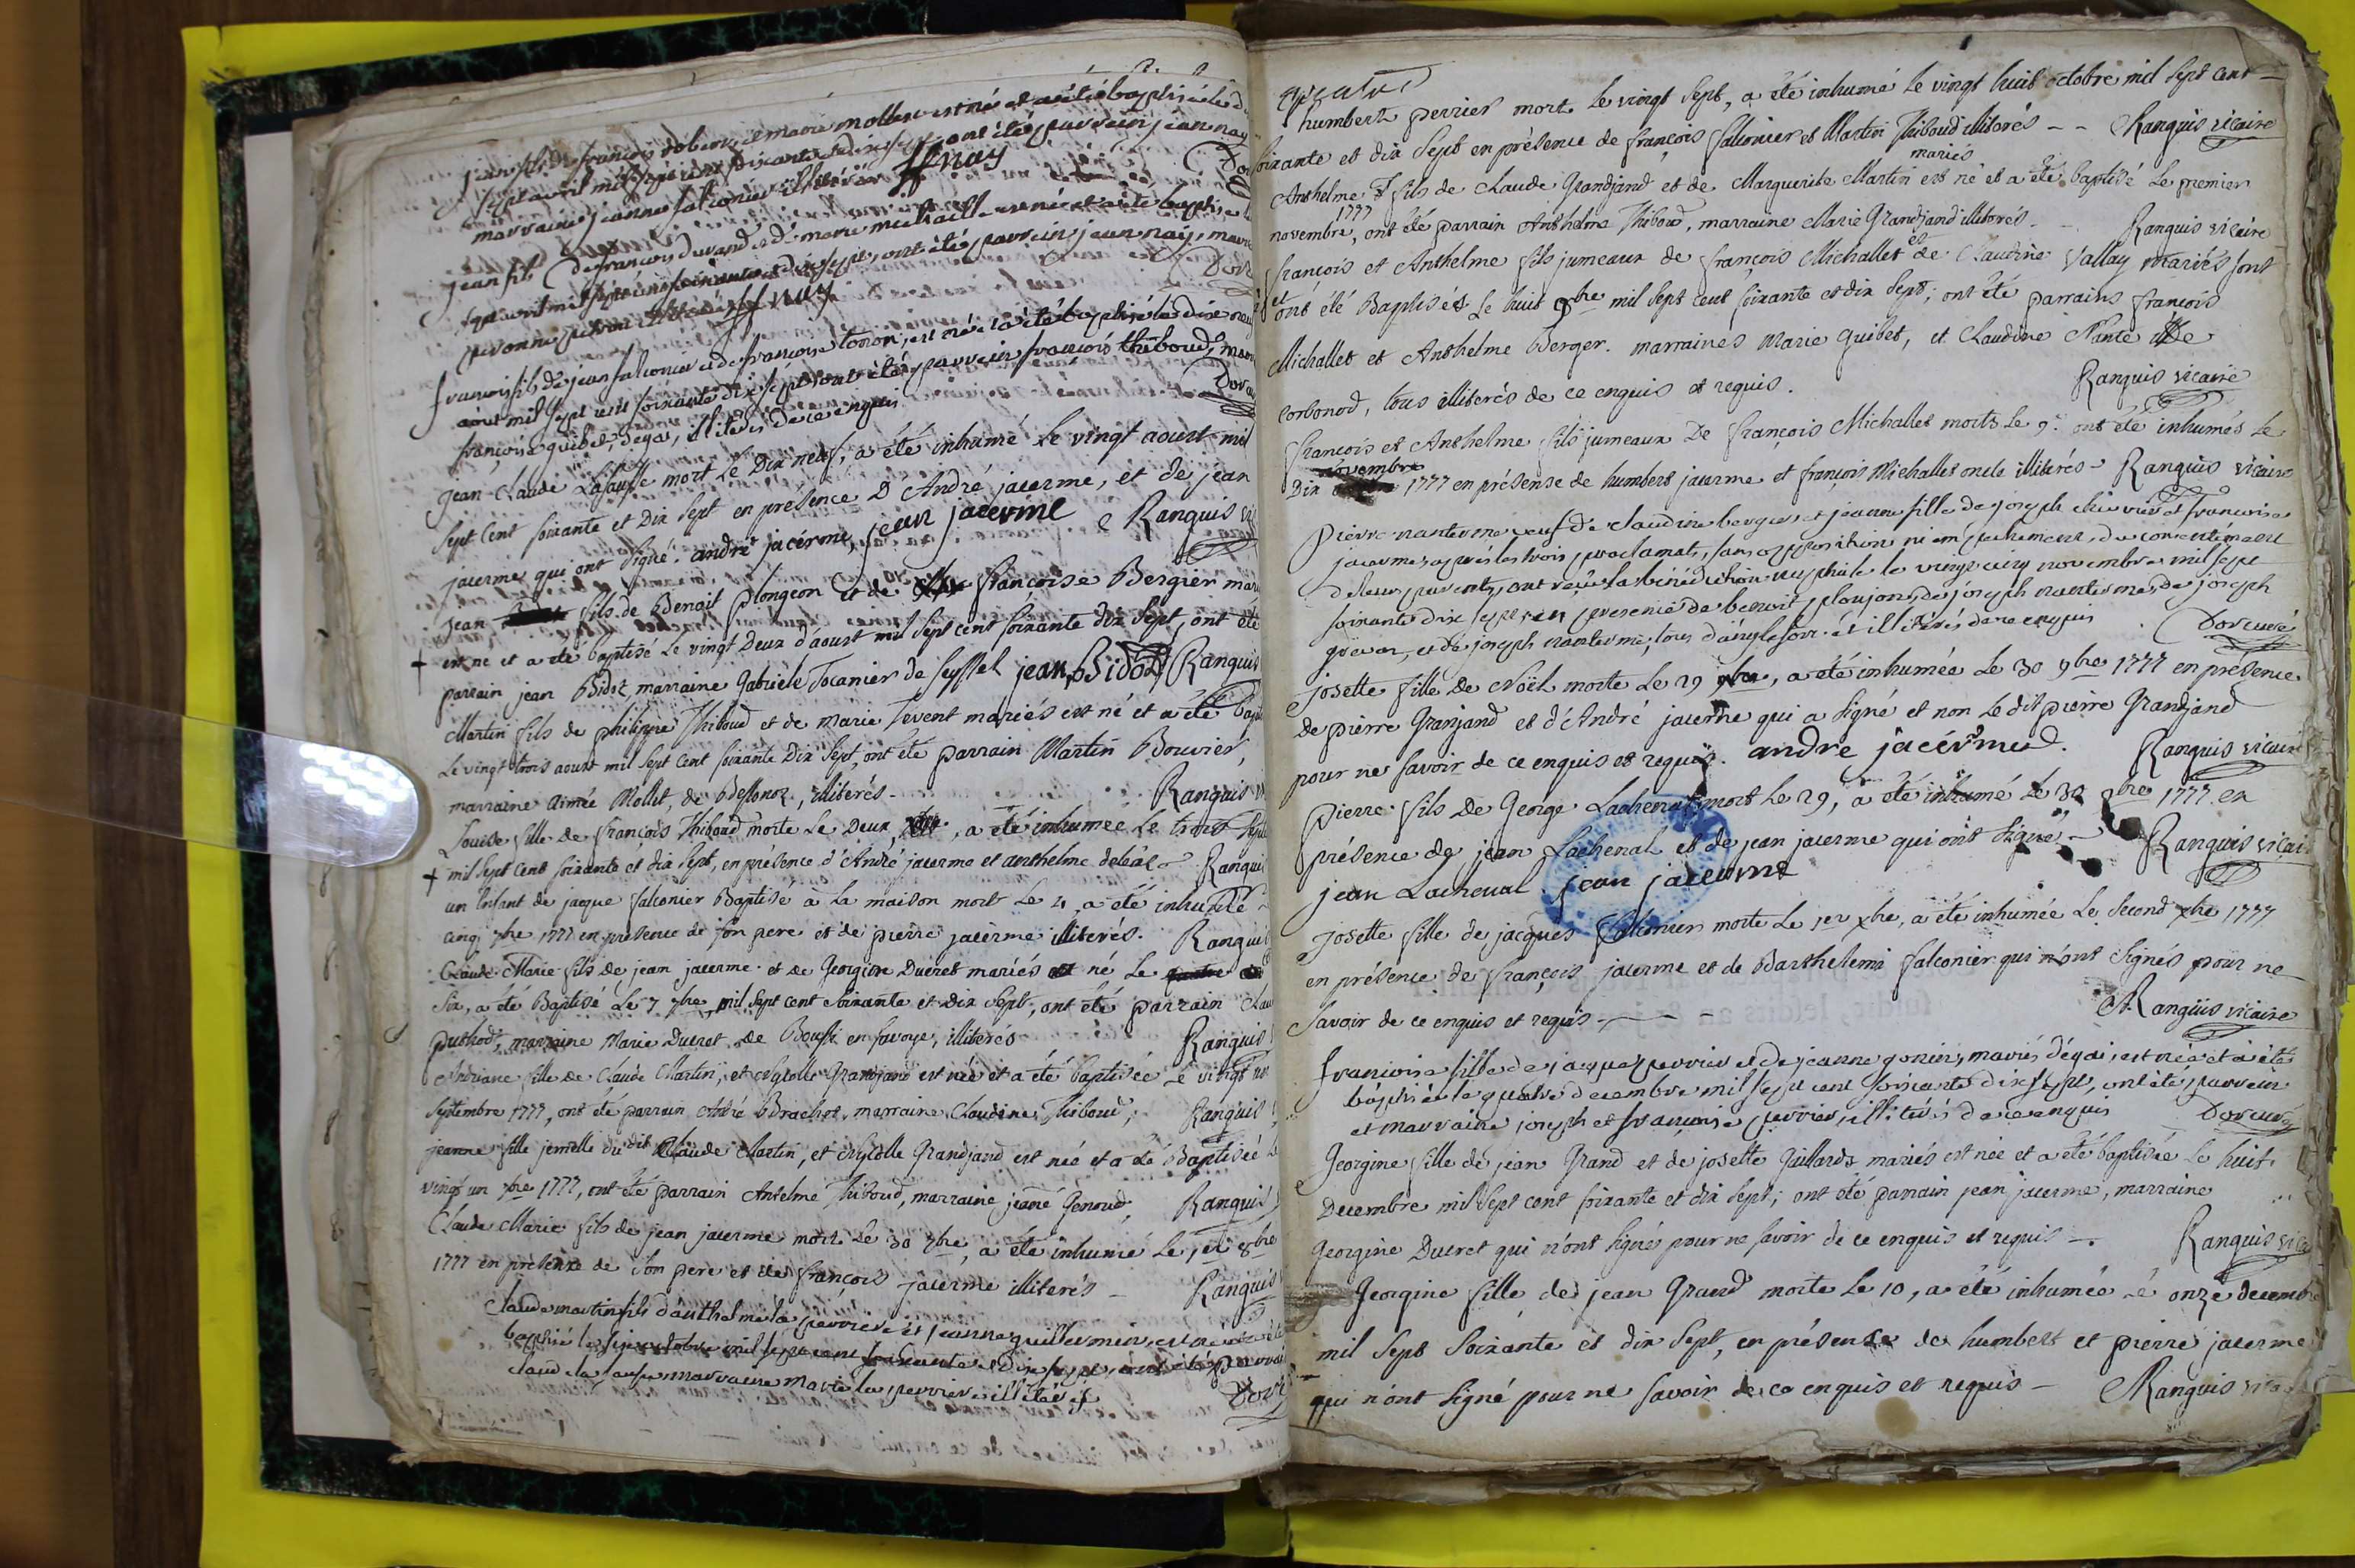 jean fils de françois robin et marie mollet est né et a été baptisé le
sept avril mil sept cent soixante et dix sept ont été parrein jean nay
marraine jeanne falconier illiterés ff nay
jean fils de françois durand et de marie michaille est né et a été baptisé
sept avril mil sept cent soixante et dix sept, ont été parrein jean nay, marr
illiterés ff nay
françois fils de jean falconier et de françoise tonon, est né et a été baptisé le dix neuf
aout mil sept cent soixante dix sept, ont été parrein françois thiboud, marr
françoise guibet, degai, illiterés de ce enquis
jean-Claude Lasausse mort Le Dix neuf, a été inhumé Le vingt aoust mil
Sept Cent soixante et Dix Sept en présence D'André jacerme, et de jean
jacerme qui ont signé. andré jacérme, jean jacerme Ranguis
jean fils de Benoit Plongeon et de françoise Bergier mar
+ est né et a été baptisé Le vingt Deux d'aoust mil Sept cent soixante dix Sept, ont été
parrain jean Bidoz marraine Gabriele Tocanier de Seyssel jean Bidoz Ranguis
Martin fils de philippe Thiboud et de marie Tevent mariés est né et a été bapt
Le vingt trois aoust mil Sept Cent soixante Dix Sept, ont été parrain Martin Bouvier,
marraine aimée Mollet, de Bessonoz, illiterés. Ranguis
Louise fille de françois Thiboud morte Le Deux, a été inhumée Le trois Septe
+ mil Sept Cent soixante et dix Sept, en présence d'André jacerme et anthelme deléaz Ranguis
un Enfant de jacque falconier Baptisé à La maison mort Le 4, a été inhumé
cinq 7bre 1777 en présence de son pere et de pierre jacerme illiterés. Ranguis
Claude Marie fils de jean jacerme et de Georgine Ducret mariés né Le
Six, a été Baptisé Le 7 7bre, mil Sept cent Soixante et dix Sept, ont été parrain Clau
puthod, marraine Marie Ducret de Boussi en Savoye, illiterés Ranguis
Andriane fille de Claude Martin, et Grandjand est née et a été baptisée Le vingt un
Septembre 1777, ont été parrain André Brachet, marraine Claudine Thiboud, Ranguis
jeanne fille jemelle du dit Claude Martin, et Grandjand est née et a été Baptisée Le
vingt un 7bre 1777, ont été parrain Antelme Thiboud, marraine jeanne Genoud, Ranguis
Claude Marie fils de jean jacerme mort Le 30 7bre, a été inhumé Le 1er 8bre
1777 en présence de Son pere et de françois jacerme illiterés - Ranguis
Claude martin fils d'anthelme la perriere et jeanne guillermin, est né et a été
baptisé le six octobre mil sept cent soixante et dix sept, ont été parrain
claude la sausse marraine marie la perriere illiterés
humbert perrier mort Le vingt Sept, a été inhumé Le vingt huit octobre mil Sept Cent -
soixante et dix Sept en présence de françois falconier et Martin Thiboud illiterés - - Ranguis vicaire
mariés
Anthelme fils de Claude Grandjand et de Marguerite Martin est né et a été baptisé Le premier
1777
novembre, ont été parrain Anthelme Thiboud, marraine Marie Grandjand illiterés - Ranguis vicaire
françois et Anthelme fils jumeaux de françois Michallet et de Claudine Vallay mariés sont
nés et ont été Baptisés Le huit 9bre mil Sept cent soixante et dix Sept; ont été parrains françois
Michallet et Anthelme Berger. marraines Marie Guibet, et Claudine Nante de
Corbonod, tous illiterés de ce enquis et requis. Ranguis vicaire
François et Anthelme fils jumeaux De françois Michallet morts Le 9. ont été inhumés Le
novembre
Dix 1777 en présense de humbert jacerme et françois Michallet oncle illiterés - Ranguis vicaire
Pierre nanterme veuf de claudine berger et jeanne fille de joseph et françoise
jacerme, après les trois proclamat, sans opposition ni empechement, du consentement
de leurs parents, ont reçu la bénédiction nuptiale le vingt cinq novembre mil sept
soixante dix sept en presence de benoit plonjon, de joseph nanterme, de joseph
et de joseph nanterme, tous et illiterés de ce enquis. Dorcuré
josette fille de Noël morte Le 29 9bre, a été inhumée Le 30 9bre 1777 en présence
de pierre Granjand et d'André jacerme qui a signé et non Le dit pierre Grandjand
pour ne savoir de ce enquis et requis. andre jacérme. Ranguis vicaire
Pierre fils De George Lachenal mort Le 29, a été inhumé Le 30 9bre 1777 en
présence de jean Lachenal et de jean jacerme qui ont Signé - Ranguis vicaire
jean Lachenal jean jacerme
Josette fille de jacques falconier morte Le 1er Xbre, a été inhumée Le Second Xbre 1777
en présence de françois jacerme et de Barthelemi falconier qui n'ont Signés pour ne
Savoir de ce enquis et requis - Ranguis vicaire
françoise fille de jacque perrier et de jeanne gonin, mariés dégai, est née et a été
baptisée le quatre decembre mil sept cent soixante dix sept, ont été parrein
et marraine joseph et françoise perrier, illiterés de ce enquis Dorcuré
Georgine fille de jean Grand et de josette Guillard mariés est née et a été baptisée Le huit
Decembre mil Sept cent soixante et dix Sept; ont été parrain jean jacerme, marraine
Georgine Ducret qui n'ont signé pour ne savoir de ce enquis et requis -. Ranguis vic
Georgine fille de jean Grand morte Le 10, a été inhumée Le onze decembre
mil Sept Soixante et dix Sept, en présence de humbert et pierre jacerme
qui n'ont signé pour ne savoir de ce enquis et requis - Ranguis vica